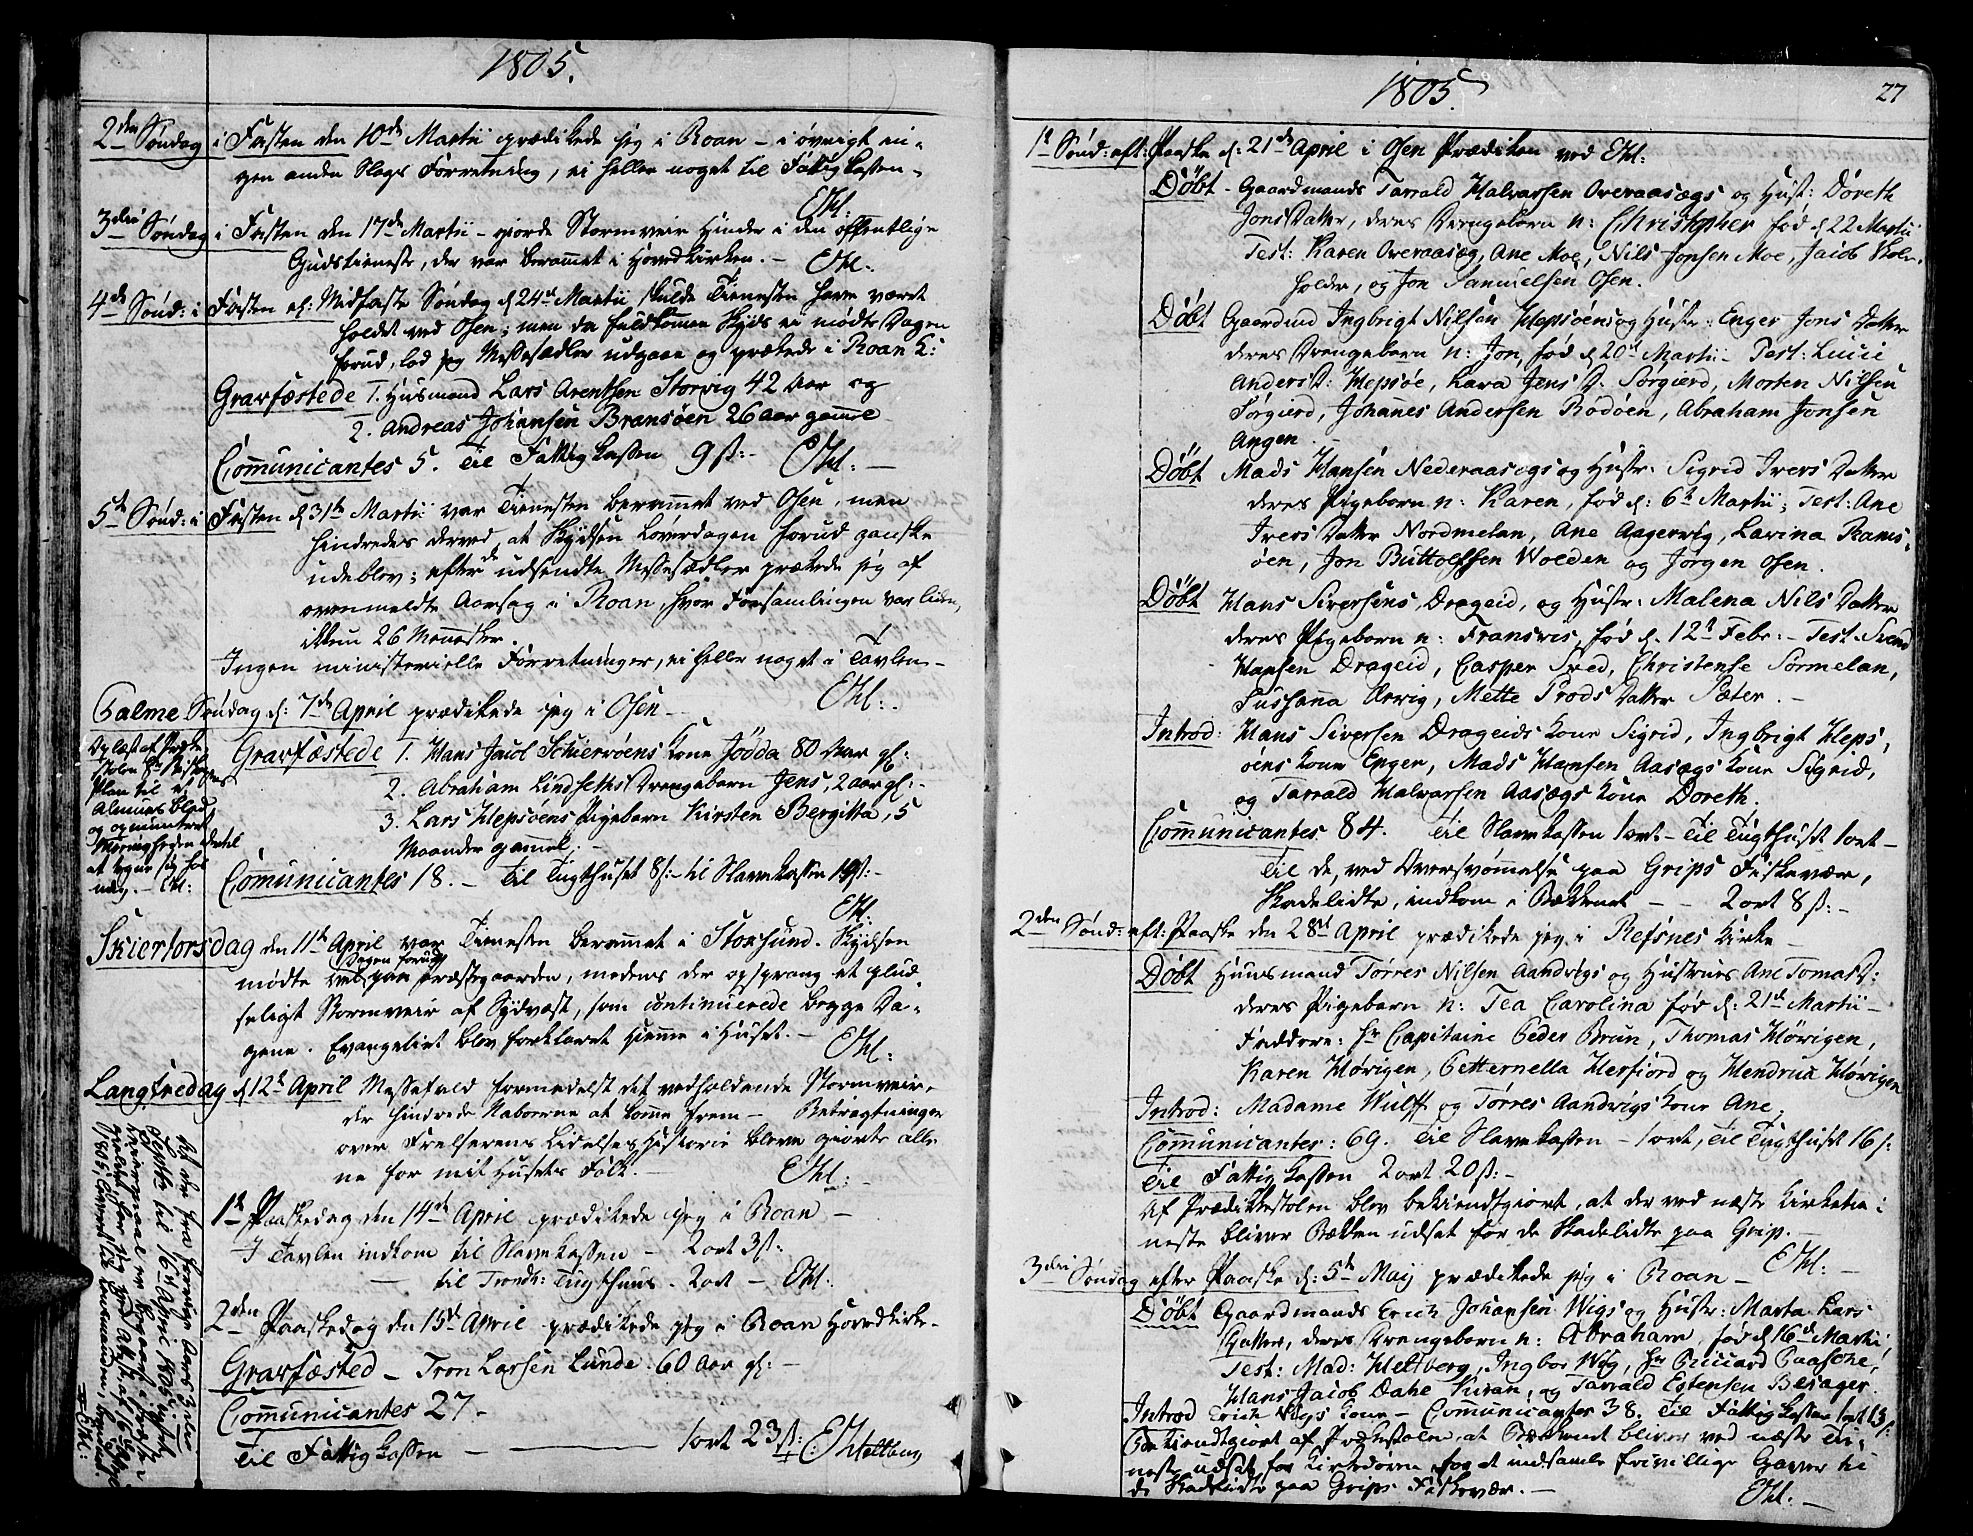 1805.
2den Søndag i Fasten den 10de Martii prædikede jeg i Roan – i øvrigt in-
gen anden Slags Forretning, ei heller noget til Fattigkassen.
EHl:
3die Søndag i Fasten den 17de Martii – giorde Stormveir Hinder i den offentlige
Gudstieneste, der var berammet i Hovedkirken. – EHl:
4de Sønd: i Fasten el: Midfaste Søndag d 24de Martii skulde Tienesten have været
holdet ved Osen; men da fuldkommen Skyds ei mødte Dagen
forud, lod jeg Messesædler udgaae og prækede i Roan K:
Gravfæstede 1. Husmand Lars Arentsen Storvig 42 Aar og
2. Andreas Johansen Bransøen 26 aar gamle
Communicantes 5. Til Fattigkassen 9 ß:– EHl: –
5te Sønd: i Fasten d 31te Martii var Tienesten berammet ved Osen, men
hindredes derved, at Skydsen Løverdagen forud ganske
udeblev; efter de udsendte Messesædler prækede jeg af
ovenmeldte Aarsag i Roan, hvor Forsamlingen var liden,
ikkun 26 Mennesker.
Ingen ministerielle Forretninger, ei heller noget i Tavlen –
EHl:
Palme Søndag d: 7de April prædikede jeg i Osen –
Oplæst af Præke-
stolen
Plan til et
Almues Blad
og opmuntret
Menigheden
at tegne sig hos
mig. – EHl:
Gravfæstede 1. Hans Jacob Schiervøens Kone Jødda 80 Aar gl:
2. Abraham Lindseths Drengebarn Jens, 2 aar gl: –
3. Lars Hepsøens Pigebarn Kirsten Bergitta, 5
Maaneder gammel. –
Communicantes 18. – Til Tugthuset 8 ß:– til Slavekassen 19 ß:–
EHl:
Skiertorsdag den 11te April var Tienesten berammet i Stoksund. Skydsen
mødte Dagen forud paa Præstegaarden, medens der opsprang et plud-
seligt Stormveir af Sydvest, som continuerede begge Da-
gene. Evangeliet blev forklaret hiemme i Huset. – EHl:
Langfredag d 12te April Messefald formedelst det vedholdende Stormveir,
der hindrede Naboerne at komme frem – Betragtninger
over Frelserens Lidelses Historie bleve giorte alle-
ne for mit Huses Folk. – EHl: –
1te Paaskedag den 14de April prædikede jeg i Roan –
I Tavlen indkom til Slavekassen – 2 ort 3 ß:
– til Trondh: Tugthuus – 2 ort – EHl:
2den Paaskedag den 15de April prædikede jeg i Roan Hovedkirke –
Gravfæsted – Tron Larsen Lunde 60 Aar gl: –
Communicantes 27 –
Til Fattigkassen – 1 ort 23 ß: EHeltberg
1805.
27
1te Sønd: eft: Paaske d: 21de April i Osen Prædiken ved EHl:
Døbt – Gaardmands Tarrald Halvarsen Overaasægs og Hust: Doreth
Jons Datter, deres Drengebarn n: Christopher fød d 22 Martii
Test: Karen Overaasæg, Ane Moe, Nils Jonsen Moe, Jacob Skole-
holder, og Jon Samuelsen Osen.
Døbt Gaardmd Ingbrigt Nilsen Hepsøens og Hustr: Enger Jons Datter
deres Drengebarn n: Jon, fød d 20de Martii – Test: Lucie
Anders D: Hepsøe, Lava Jens D. Sørgierd, Morten Nilsen
Sørgierd, Johannes Andersen Bødøen, Abraham Jonsen
Angen.
Døbt Mads Hansen Nederaasægs og Hustr: Sigrid Ivers Datter
deres Pigebarn n: Karen, fød d: 6te Martii; Test: Ane
Ivers Datter Nordmelan, Ane Aagervig, Lavina Rams-
øen, Jon Buttolfsen Wolden og Jørgen Osen.
Døbt Hans Siversens Drageid, og Hustr: Malena Nils Datter
deres Pigebarn n: Fransvis, fød d. 12te Febr: – Test: Svend
Hansen Drageid, Casper Sved, Christense Sørmelan,
Sussanna Arvig, Mette Trods Datter Sæter. –
Introd: Hans Siversen Drageids Kone Sigrid, Ingbrigt Heps-
øens Kone Enger, Mads Hansen Aasægs Kone Sigrid,
og Tarrald Halvarsen Aasægs Kone Doreth.
Communicantes 84. Til Slavekassen 1 ort – Til Tugthuset 1 ort –
Til de, ved Oversvømmelse paa Grips Fiskevær,
Skadelidte, indkom i Bækkenet – – 2 ort 8 ß: –
2den Sønd: eft: Paaske den 28de April prædikede jeg i Refsnes Kirke –
Døbt Huusmand Tørres Nilsen Aandvigs og Hustrues Ane Tomas D:
deres Pigebarn n: Tea Carolina fød d: 21de Martii –
Faddere: Hr Capitaine Peder Brun, Thomas Hövigen,
Karen Hövigen, Petternella Herfiord og Hendrica Hövigen
Introd: Madame Wulff og Tørres Aandvigs Kone Ane.
Communicantes: 69. Til Slavekassen – 1 ort, Til Tugthuset 16 ß:
Til Fattigkassen 2 ort 20 ß: –
Af Prædikestolen blev bekiendtgiort, at der ved næste Kirketie-
neste bliver Bækken udsat for de Skadelidte paa Grip. –
EHl: –
3die Søndag efter Paaske d: 5te Maij prædikede jeg i Roan –
Døbt Gaardmands Erich Johansen Wigs og Hustr: Marta Lars
Datter, deres Drengebarn n: Abraham, fød d 16de Martii
Test: Mad: Heltberg, Ingbor Wig, Hr Riccard Paasche,
Hans Jacob Dahl Kiran, og Tarrald Estensen Besager.
Introd Erich Wigs Kone – Communicantes 38. Til Fattigkassen 1 ort 13 ß:
Bekiendtgiort af Prækestolen, at Bækkenet bliver ved næste Tie-
neste udsat for Kirkedøren for at indsamle frivillige Gaver til
de Skadelidte paa Grips Fiskevær. –
EHl: –